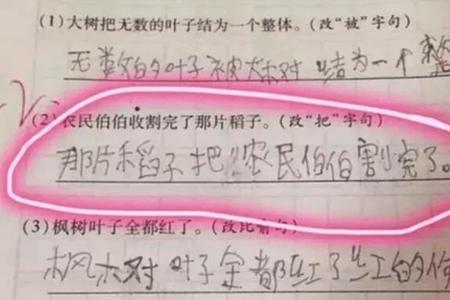 (1)大树把无数的叶子结为一个整体。(改“被”字句)
无数的叶子被大树结为一个
(2)农民伯伯收割完了那片稻子。(改“把”字句)
那片稻子把农民伯伯割完了。
(3)枫树叶子全都红了。(改比喻句)
枫树叶子全都红了红的你